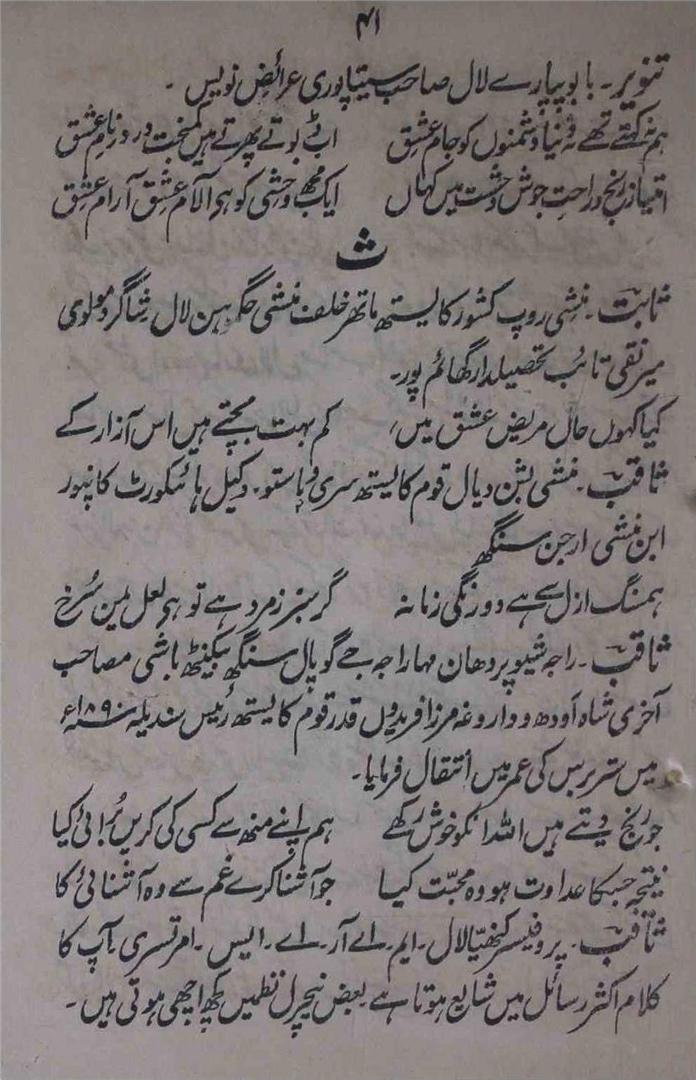 ۴۱
تنویر۔ بابو پیارے لال صاحب سیتاپوری عرائض نویس۔
ہم نہ کہتے تھے نہ دنیا دشمنوں کو جام عشق اب ڈبوتے پھرتے ہیں کمبخت در در نام عشق
امتیاز رنج و راحت جوش وحشت میں کہاں ایک مجھ وحشی کو ہی آلام عشق آرام عشق
ث
ثابت۔ منشی روپ کشور کایستھ ماتھر خلف منشی جگموہن لال شاگرد مولوی
میر نقی تائب تحصیلدار گھاٹم پور۔
کیا کہوں حال مریض عشق میں، کم بہت بچتے ہیں اس آزار کے
ثاقب۔ منشی بشن دیال قوم کایستھ سری واستو۔ وکیل ہائیکورٹ کانپور
ابن منشی ارجن سنگھ
ہمسنگ ازل سے ہے دورنگی زمانہ گر سبز زمرد ہے تو ہی لعل یمن سرخ
ثاقب۔ راجہ شیو پردھان مہاراجہ جے گوپال سنگھ بیکنٹھ باشی مصاحب
آخری شاہ آودھ و داروغہ مرزا فریدوں قدر قوم کایستھ رئیس سندیلہ ۱۸۹۰ء
میں ستر برس کی عمر میں انتقال فرمایا۔
جو رنج دیتے ہیں اللہ انکو خوش رکھے ہم اپنے منھ سے کسی کی کریں برائی کیا
نتیجہ جسکا عداوت ہو وہ محبت کیا جو آشنا کرے غم سے وہ آشنائی کا
ثاقب۔ پروفیسر کنھیا لال۔ ایم۔ اے آر۔ اے۔ ایس۔ امرتسری۔ آپ کا
کلام اکثر رسائل میں شایع ہوتا ہے بعض نیچرل نظمیں کچھ اچھی ہوتی ہیں۔